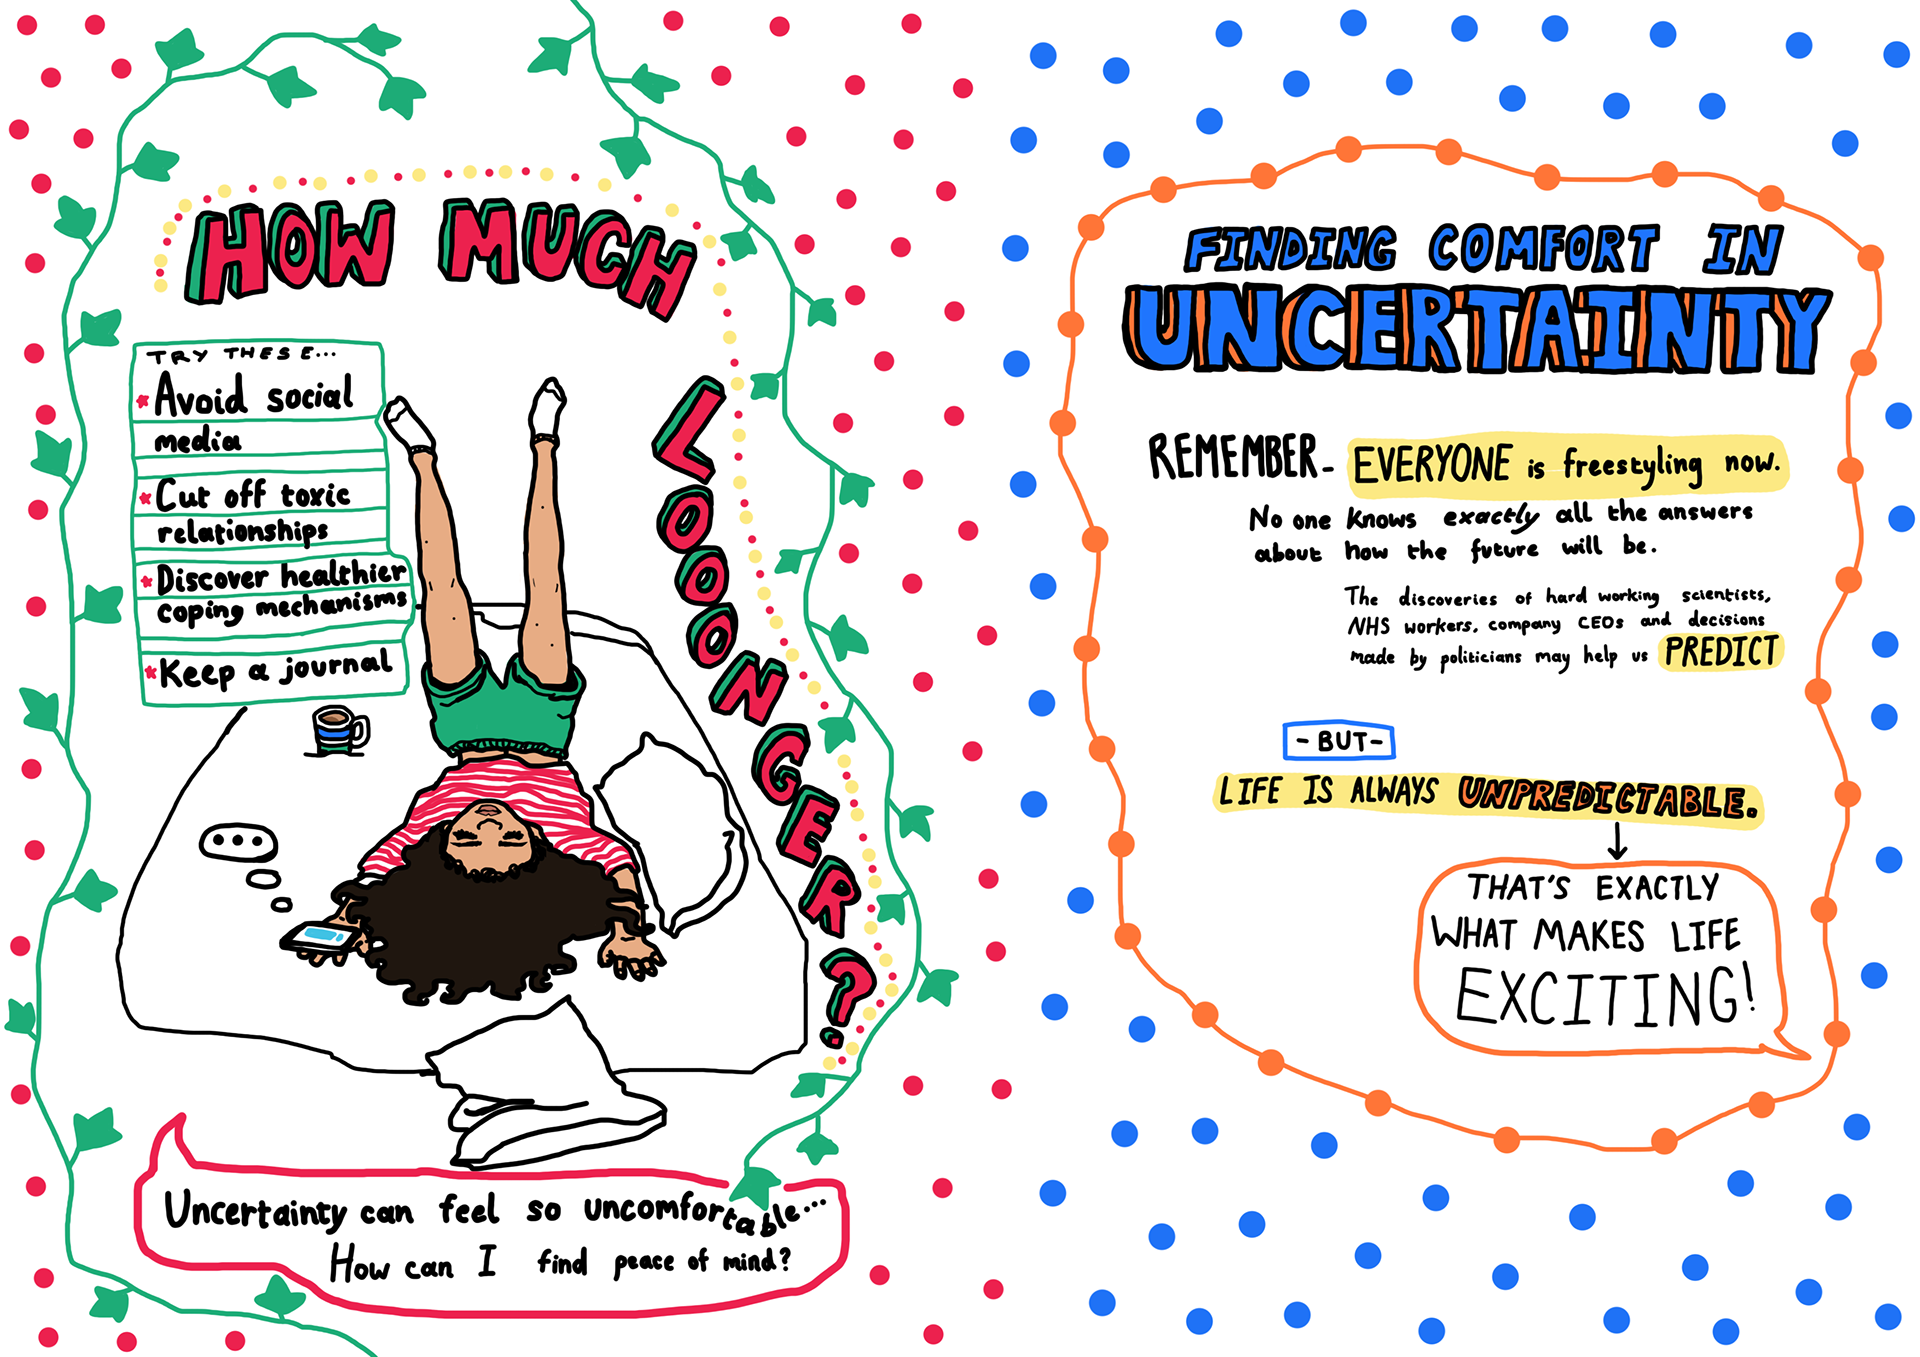 HOW MUCH
LOOOONGER?
TRY THESE...
* Avoid social
media
* Cut off toxic
relationships
* Discover healthier
coping mechanisms
* Keep a journal
...
Uncertainty can feel so uncomfortable...
How can I find peace of mind?
FINDING COMFORT IN
UNCERTAINTY
REMEMBER- EVERYONE is freestyling now.
No one knows exactly all the answers
about how the future will be.
The discoveries of hard working scientists,
NHS workers, company CEOs and decisions
made by politicians may help us PREDICT
- BUT -
LIFE IS ALWAYS UNPREDICTABLE.
THAT'S EXACTLY
WHAT MAKES LIFE
EXCITING!